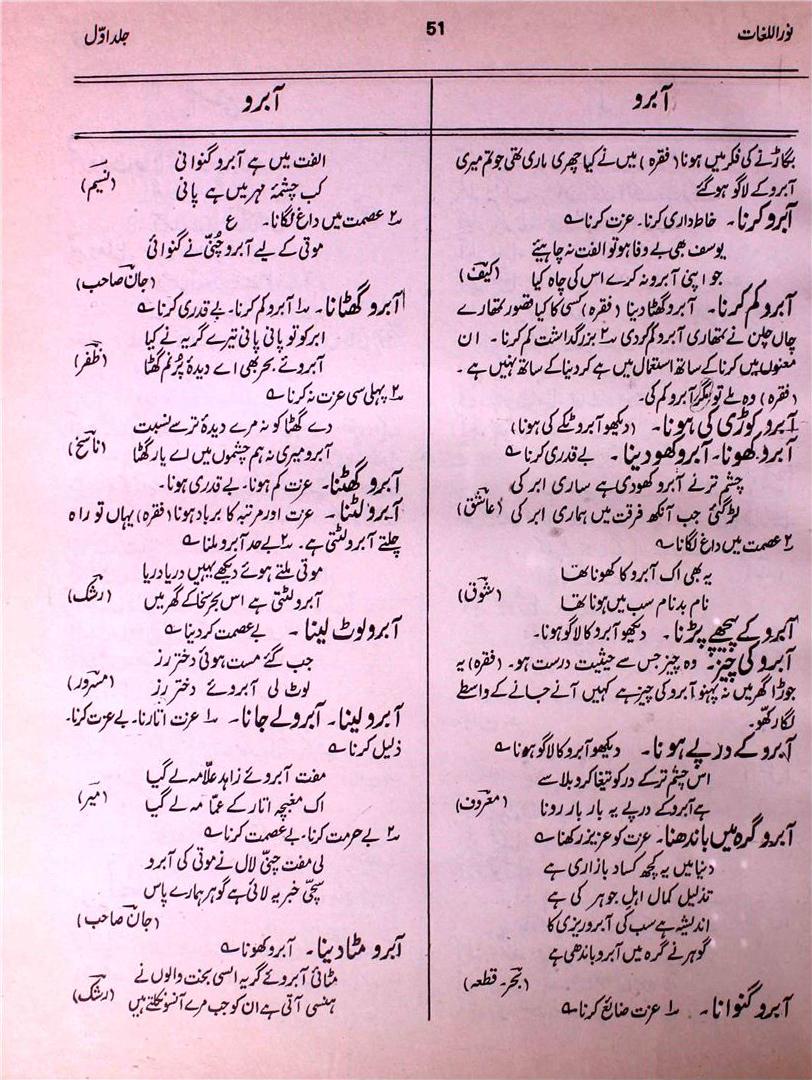 نوراللغات
51
جلد اوّل
آبرو
آبرو
بگاڑنے کی فکر میں ہونا (فقرہ) میں نے کیا چھری ماری تھی جو تم میری
آبرو کے لاگو ہوگئے
آبرو کرنا۔ خاطر داری کرنا۔ عزت کرنا ؎
یوسف بھی بے وفا ہو تو الفت نہ چاہیئے
جو اپنی آبرو نہ کرے اس کی چاہ کیا (کیف)
آبرو کم کرنا۔ آبرو گھٹا دینا (فقرہ) کسی کا کیا قصور تمھارے
چال چلن نے تمھاری آبرو کم کردی ۲ بزرگداشت کم کرنا۔ ان
معنوں میں کرنا کے ساتھ استعمال میں ہے کر دینا کے ساتھ نہیں ہے۔
(فقرہ) وہ ملے تو مگر آبرو کم کی۔
آبرو کوڑی کی ہونا۔ (دیکھو آبرو ٹکے کی ہونا)
آبرو کھونا۔ آبرو کھو دینا۔ بے قدری کرنا ؎
چشم تر نے آبرو کھودی ہے ساری ابر کی
لڑ گئی جب آنکھ فرقت میں ہماری ابر کی (عاشق)
۲ عصمت میں داغ لگانا ؎
یہ بھی اک آبرو کا کھونا تھا
نام بدنام سب میں ہونا تھا (شوق)
آبرو کے پیچھے پڑنا۔ دیکھو آبرو کا لاگو ہونا۔
آبرو کی چیز۔ وہ چیز جس سے حیثیت درست ہو۔ (فقرہ) یہ
جوڑا گھر میں نہ پہنو آبرو کی چیز ہے کہیں آنے جانے کے واسطے
لگا رکھو۔
آبرو کے درپے ہونا۔ دیکھو آبرو کا لاگو ہونا ؎
اس چشم تر کے در کو تیغا کرو بلا سے
ہے آبرو کے درپے یہ بار بار رونا (معروف)
آبرو گرہ میں باندھنا۔ عزت کو عزیز رکھنا ؎
دنیا میں یہ کچھ کساد بازاری ہے
تذلیل کمال اہل جوہر کی ہے
اندیشہ ہے سب کی آبروریزی کا
گوہر نے گرہ میں آبرو باندھی ہے
(بحر۔ قطعہ)
آبرو گنوانا۔ ۱ عزت ضائع کرنا ؎
الفت میں ہے آبرو گنوانی
کب چشمۂ مہر میں ہے پانی (نسیم)
۲ عصمت میں داغ لگانا۔ ع
موتی کے لیے آبرو چُنّی نے گنوائی
(جان صاحب)
آبرو گھٹانا۔ ۱ آبرو کم کرنا۔ بے قدری کرنا ؎
ابر کو تو پانی پانی تیرے گریہ نے کیا
آبروئے بحر بھی اے دیدۂ پُرنم گھٹا (ظفر)
۲ پہلی سی عزت نہ کرنا ؎
دے گھٹا کو نہ مرے دیدۂ تر سے نسبت
آبرو میری نہ ہم چشموں میں اے یار گھٹا (ناسخ)
آبرو گھٹنا۔ عزت کم ہونا۔ بے قدری ہونا۔
آبرو لٹنا۔ عزت اور مرتبہ کا برباد ہونا (فقرہ) یہاں تو راہ
چلتے آبرو لٹتی ہے۔ ۲ بے حد آبرو ملنا ؎
موتی ملتے ہوئے دیکھے نہیں دریا دریا
آبرو لٹتی ہے اس بحر سخا کے گھر میں (رشک)
آبرو لوٹ لینا۔ بے عصمت کر دینا ؎
جب گئے مست ہوئی دختر رز
لوٹ لی آبروئے دختر رز (مسرور)
آبرو لینا۔ آبرو لے جانا۔ ۱ عزت اتارنا۔ بے عزت کرنا۔
ذلیل کرنا ؎
مفت آبروئے زاہد علّامہ لے گیا
اک مغبچہ اتار کے عمّامہ لے گیا (میر)
۲ بے حرمت کرنا۔ بے عصمت کرنا ؎
لی مفت چنّی لال نے موتی کی آبرو
سچّی خبر یہ لائی ہے گوہر ہمارے پاس
(جان صاحب)
آبرو مٹا دینا۔ آبرو کھونا ؎
مٹائی آبروئے گریہ ایسی بخت والوں نے
ہنسی آتی ہے ان کو جب مرے آنسو نکلتے ہیں (رشک)